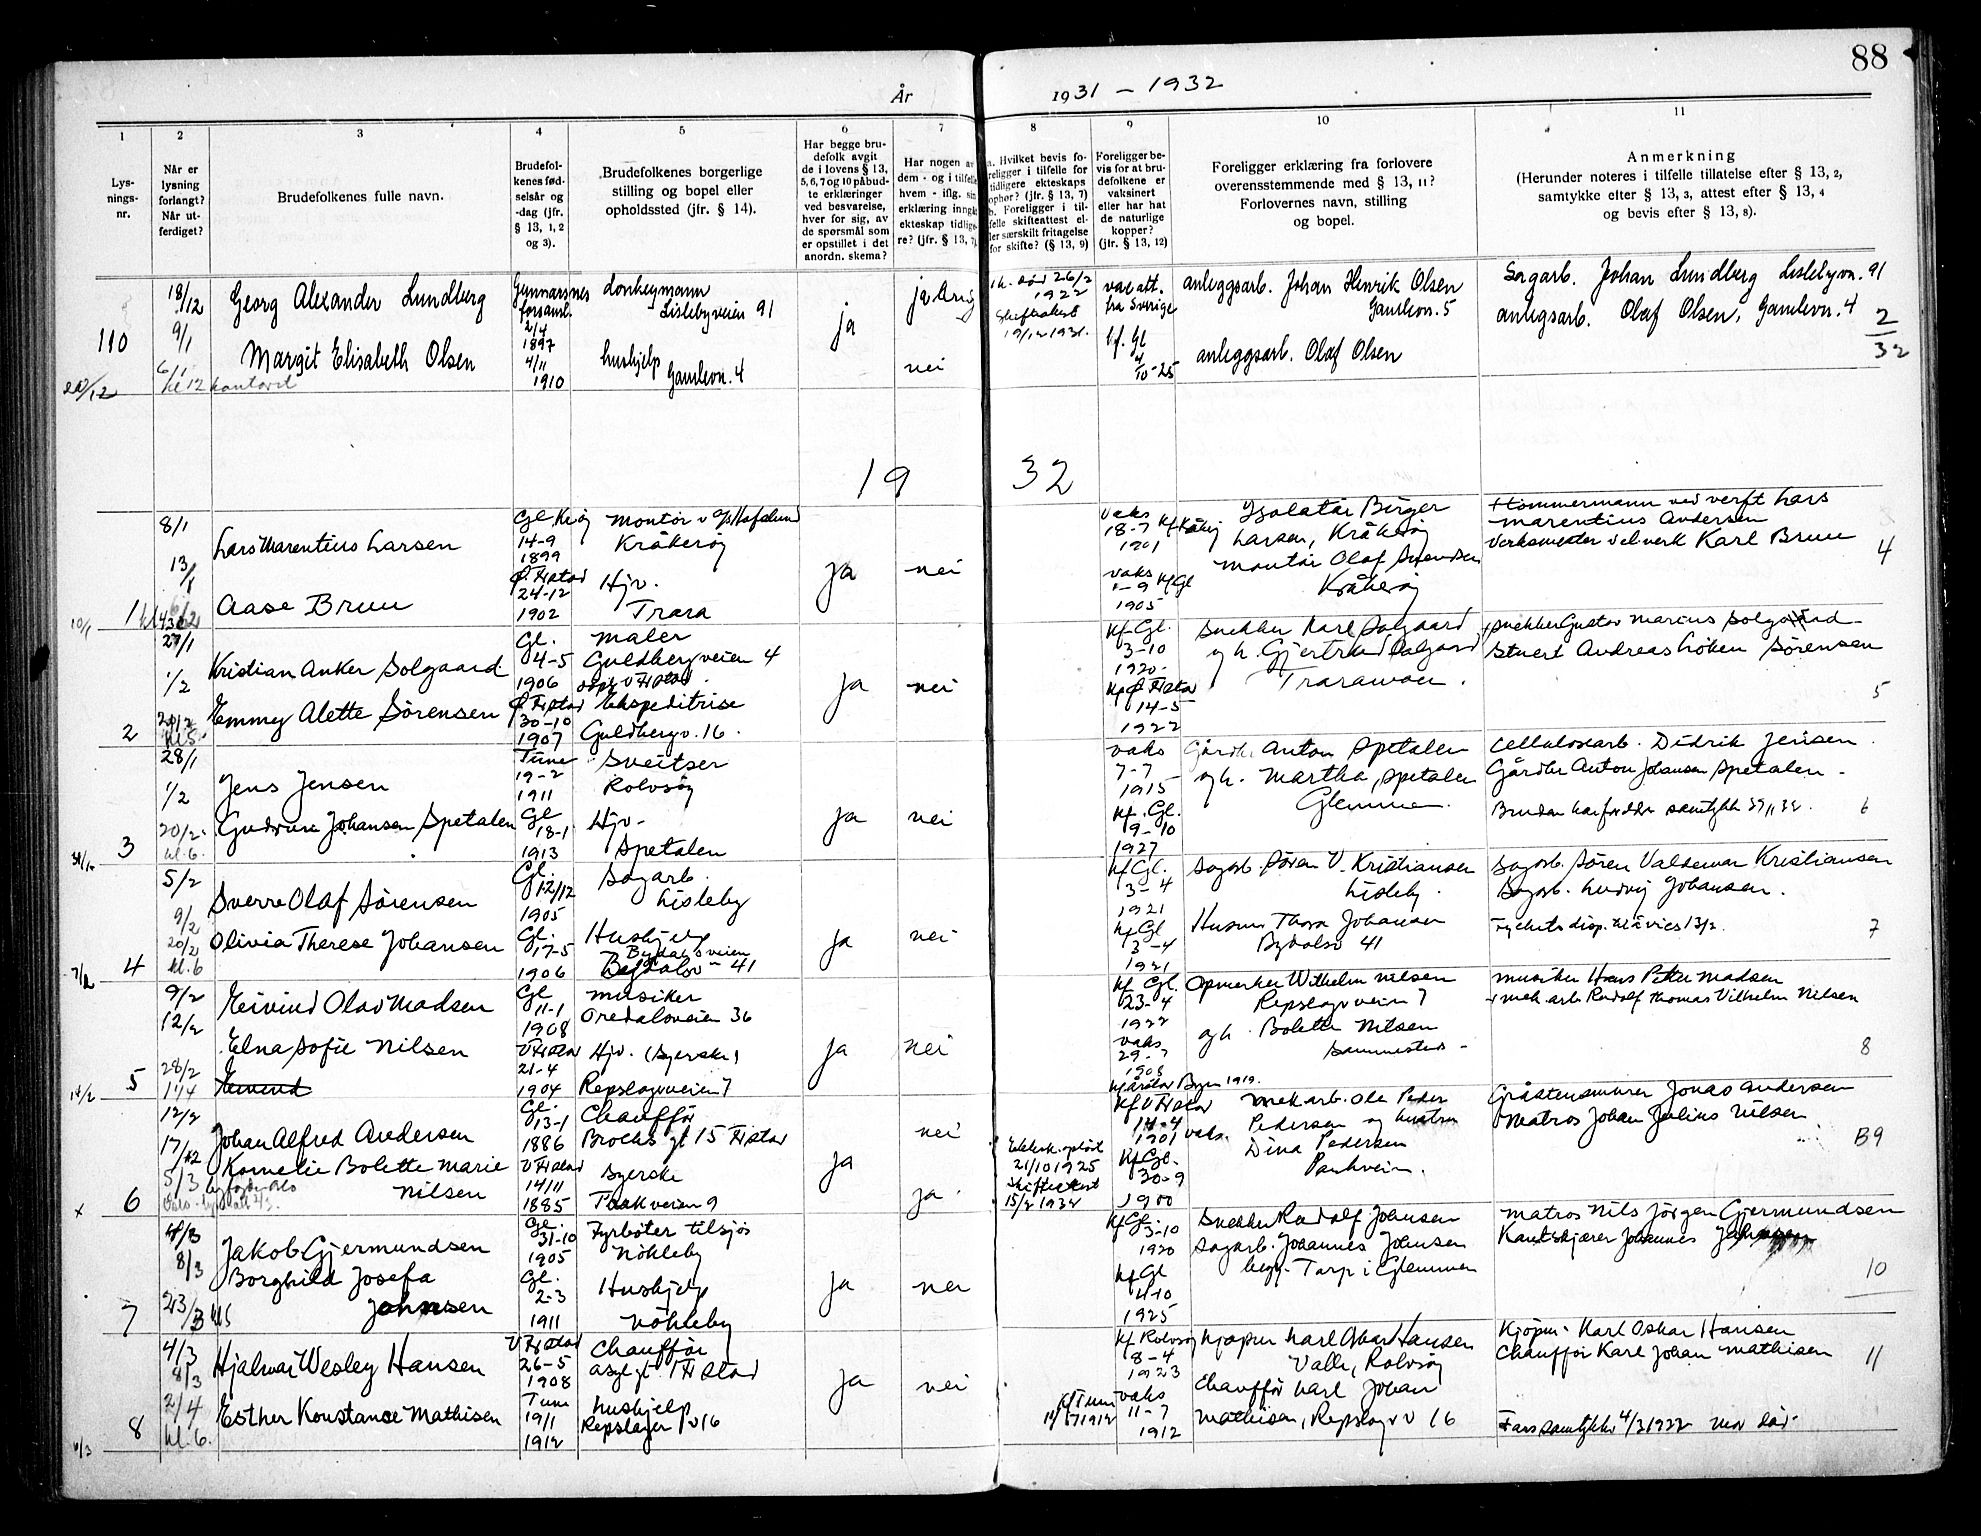 88
År 1931 - 1932
1 2 3 4 5 6 7 8 9 10 11
Lys-
nings-
nr.
Når er
lysning
forlangt?
Når ut-
ferdiget?
Brudefolkenes fulle navn.
Brudefol-
kenes fød-
selsår og
-dag (jfr.
§ 13, 1, 2
og 3).
Brudefolkenes borgerlige
stilling og bopel eller
opholdssted (jfr. § 14).
Har begge bru-
defolk avgit
de i lovens § 13,
5, 6, 7 og 10 påbud-
te erklæringer
ved besvarelse,
hver for sig, av
de spørsmål som
er opstillet i det
anordn. skema?
Har nogen av
dem - og i tilfelle
hvem - iflg. sin
erklæring inngått
ekteskap tidlige-
re? (jfr. § 13, 7)
a. Hvilket bevis fo-
religger i tilfelle for
tidligere ekteskaps
ophør? (jfr. § 13, 7)
b. Foreligger i til-
felle skifteattest el-
ler særskilt fritagelse
for skifte? (§ 13, 9)
Foreligger be-
vis for at bru-
defolkene er
vaksinert
eller har hat
de naturlige
kopper?
(jfr. § 13, 12)
Foreligger erklæring fra forlovere
overensstemmende med § 13, 11?
Forlovernes navn, stilling
og bopel.
Anmerkning
(Herunder noteres i tilfelle tillatelse efter § 13, 2,
samtykke efter § 13, 3, attest efter § 13, 4
og bevis efter § 13, 8).
110
18/12
9/1
6/1
kl 12 kontoret
Georg Alexander Lundberg
Margit Elisabeth Olsen
Gunnarsnes
forsaml.
2/4
1897
4/11
1910
donkeymann
Lislebyveien 91
hushjelp
Gamlevn. 4
ja
nei
død 26/2
1922
Skifteattest
19/12 1931.
fra Sverige
Kf. Gl
4/10-25
anleggsarb. Johan Henrik Olsen
Gamlevn. 5
anleggsarb. Olaf Olsen
Sagarb. Johan Lundberg Lislebyvn. 91
anlegsarb. Olaf Olsen, Gamlevn. 4
2
32
19 32
1
10/1
8/1
13/1
Lars Marentius Larsen
Aase Bruu
14-9
1899
24-12
1902
Kråkerøy
Hjv.
Trara
ja
nei
vaks
18-7
1901
vaks
1905
Isolatør Birger
Larsen, Kråkerøy
montør Olaf Svendsen
Kråkerøy
Tømmermann ved verft Lars
Marentius Andersen
Verksmester Karl Bruu
4
2
29/1
1/2
20/2
kl 5
Kristian Anker Solgaard
Emmy Alette Sørensen
Gl.
4-5
1906
30-10
1907
maler
Guldbergveien 4
Ekspeditrise
Guldbergv. 16.
ja
nei
Kf. Gl.
3-10
1920
14-5
1922
Snekker Karl Solgaard
og h. Gjertrud Solgaard
Traraveien.
Snekker Gustav Marius Solgaard
Stuert Andreas Løken Sørensen
5
3
28/1
1/2
20/2
kl. 6.
Jens Jensen
Gudrun Johansen Spetalen
Tune
19-2
1911
Gl
18-1
1913
Sveitser
Rolvsøy
Hjv.
Spetalen
ja
nei
vaks
7-7
1915
Kf. Gl.
9-10
1927
Gårdbr Anton Spetalen
og h. Martha Spetalen
Glemmen.
Cellulosearb. Didrik Jensen.
Gårdbr Anton Johansen Spetalen.
6
4
7/2
5/2
9/2
20/2
kl. 6
Sverre Olaf Sørensen
Olivia Therese Johansen
Gl.
12/12
1905
Gl.
17-5
1906
Sagarb.
Lisleby
Hushjelp
41
ja
nei
Kf Gl.
3-4
1921
Kf Gl
3-4
1921
Sagarb. Søren V. Kristiansen
Lisleby.
Husmor Thora Johansen
41
Sagarb. Søren Valdemar Kristiansen
Sagarb. Ludvig Johansen.
7
5
9/2
12/2
28/2
Eivind Olav Madsen
Elna Sofie Nilsen
Gl
11-1
1908
21-4
1904
musiker
Oredalsveien 36
Hjv. (Syerske)
Repslagerveien 7
ja
nei
Kf Gl.
23-4
1922
vaks
29-7
1905
Opmerker Wilhelm Nilsen
Repslagerveien 7
og h. Bolette Nilsen
sammesteds -
musiker Hans Peter Madsen
mek arb Rudolf Thomas Vilhelm Nilsen
8
6
x
12/2
5/3
Johan Alfred Andersen
Kornelie Bolette Marie
Nilsen
Gl.
13-1
1886
14/11
1885
Chauffør
Syerske
Parkveien 9
ja
nei
ja.
21/10 1925
Skifteattest
15/2 1932
Kf Gl.
30-9
1900
mek arb. Ole Peder
Pedersen og hustru
Dina Pedersen
Parkveien.
Gråstensmurer Jonas Andersen
Matros Johan Julius Nilsen
B9
7
8/3
23/3
Jakob Gjermundsen
Borghild Josefa
Johnsen
Gl.
31-10
1905
Gl.
2-3
1911
Fyrbøter tilsjøs
Nøkleby
Hushjelp
Nøkleby
ja
nei
3-10
1920
Kf Gl
4-10
1925
Snekker Rudolf Johnsen
Sagarb. Johannes Johnsen
begge Torp i Glemmen
Matros Nils Jørgen Gjermundsen
Kantskjærer Johannes
10
8
4/3
8/3
2/4
kl. 6.
Hjalmar Wesley Hansen
Esther Konstance Mathisen
26-5
1908
Tune
19/1
1912
Chauffør
hushjelp
Repslager v 16
ja
nei
Kf Rolvsøy
8-4
1923
vaks
11-7
1912
Kjøpm Karl Oskar Hansen
Valle, Rolvsøy
Chauffør Karl Johan
Mathisen, Repslagerv 16
Kjøpm. Karl Oskar Hansen
Chauffør Karl Johan Mathisen
11
Fars samtykke 4/3 1932 mor død.